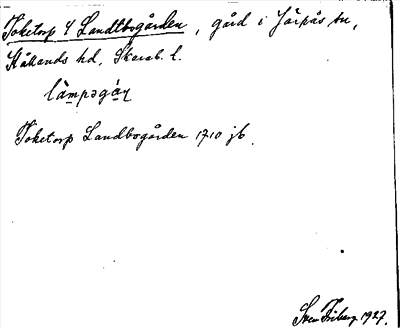 Toketorp 4 Landtbogården, gård i Järpås sn,
Kållands hd, Skarab. l.
Toketorp Landbogården 1710 jb.
Sven Friberg 1927.